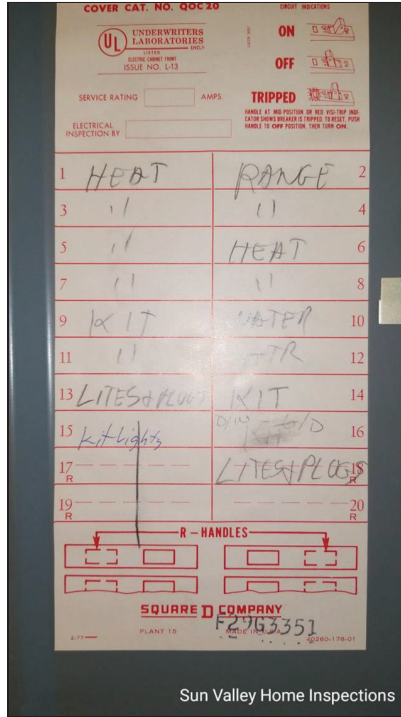 COVER CAT. NO. QOC20
CIRCUIT INDICATIONS
UL
UNDERWRITERS
LABORATORIES
LISTED
ELECTRIC CABINET FRONT
ISSUE NO. L-13
ON
OFF
TRIPPED
HANDLE AT MID-POSITION OR RED VISI-TRIP INDI-
CATOR SHOWS BREAKER IS TRIPPED. TO RESET, PUSH
HANDLE TO OFF POSITION, THEN TURN ON.
SERVICE RATING AMPS.
ELECTRICAL
INSPECTION BY
1 HEAT RANGE 2
3 " " 4
5 " HEAT 6
7 " " 8
9 KIT WATER 10
11 " HTR 12
13 LITES & PLUGS KIT 14
15 Kit Lights 16
17 R LITES & PLUGS 18 R
19 R 20 R
R - HANDLES
SQUARE D COMPANY
2-77 PLANT 15 MADE IN U.S.A. 40260-178-01
F29G3351
Sun Valley Home Inspections